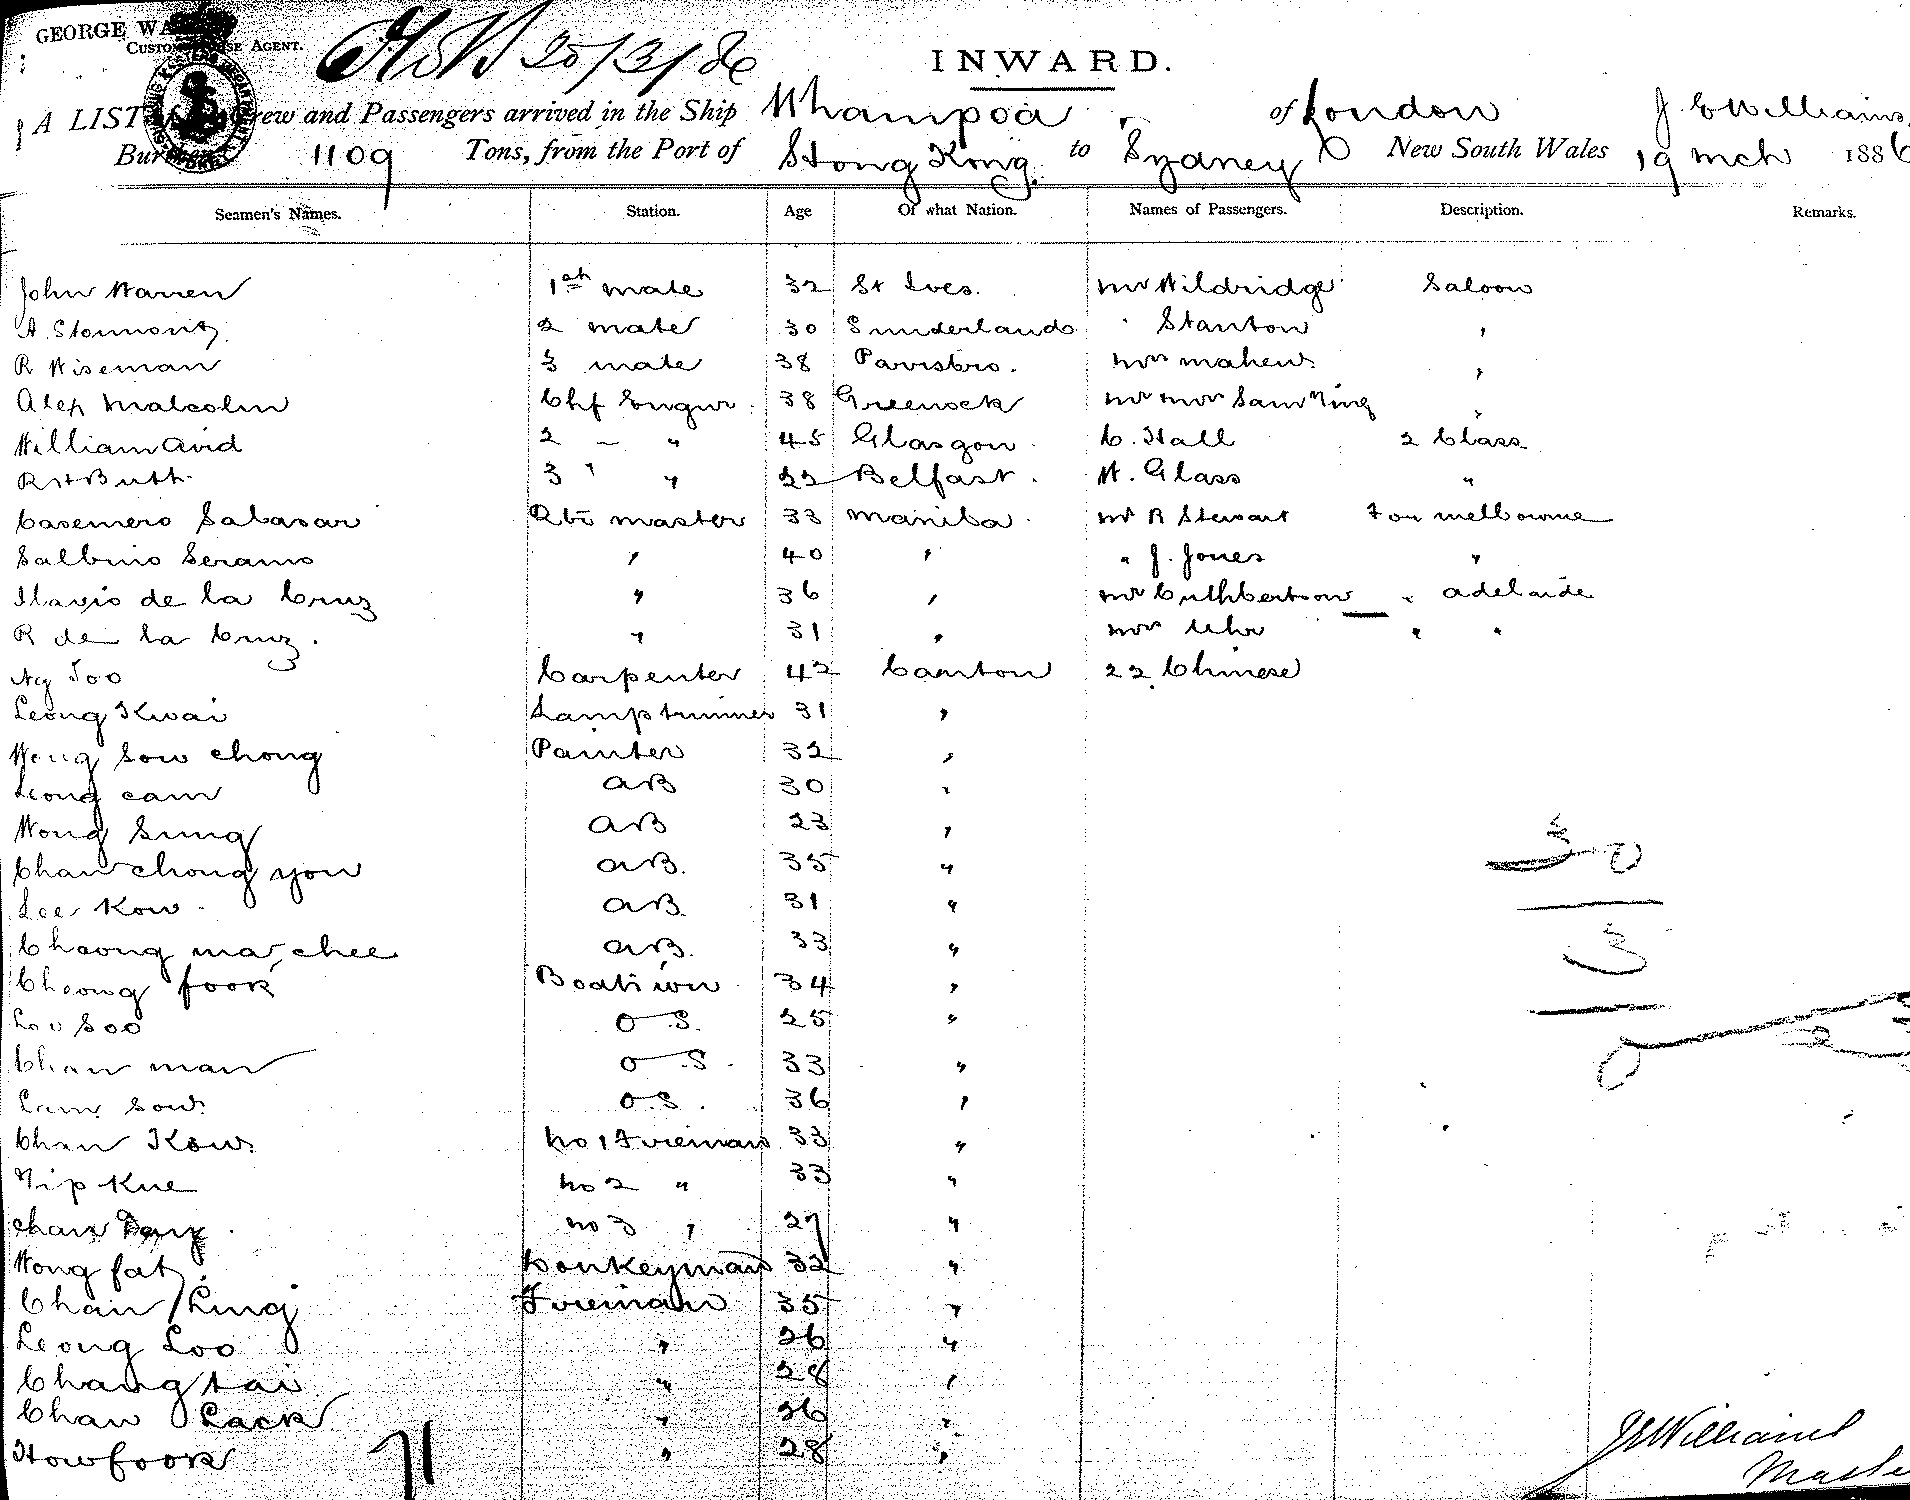 GEORGE WA
CUSTOM HOUSE AGENT.
20/3/86
INWARD.
A LIST of Crew and Passengers arrived in the Ship Whampoa of London J E Williams
Burthen 1109 Tons, from the Port of Hong Kong to Sydney New South Wales 19 Mch 1886
Seamen's Names. Station. Age Of what Nation. Names of Passengers. Description. Remarks.
John Warren 1st mate 32 St Ives. Mr Wildridge Saloon
A. Stormont 2 mate 30 Sunderland " Stanton "
R Wiseman 3 mate 38 Parrsbro. Mrs Mahew "
Alex Malcolm Chf Engnr. 38 Greenock Mr Mrs Sam "
William Avid 2 - " 45 Glasgow C. Hall 2 Class
R H Butt 3 " " 22 Belfast. W. Glass "
Casemero Salasar Qtr master 33 Manila Mr R Stewart For Melbourne
Salbino Serano " 40 " " J. Jones "
Ilavio de la Cruz " 36 " Mr Cuthbertson " Adelaide
R de la Cruz. " 31 " Mrs " "
Ng Soo Carpenter 42 Canton 22 Chinese
Leong Kwai Lamptrimmer 31 "
Wong Sow Chong Painter 32 "
Leong Cam AB 30 "
Wong Sung AB 23 "
Chan Chong You AB. 35 "
Lee Kow AB. 31 "
Cheong Ma Chee AB. 33 "
Cheong Fook Boatswn 34 "
Soo O S. 25 "
Chan Man O S. 33 "
Lam Sow O.S. 36 "
Chan Kow No 1 Fireman 33 "
Yip Kue No 2 " 33 "
Chan No 3 " 27 "
Wong Fat Donkeyman 32 "
Chan Ling Fireman 35 "
Leong Loo " 26 "
Chang Tai " 28 "
Chan Lack " 36 "
How Fook " 28 "
71
J E Williams
Master